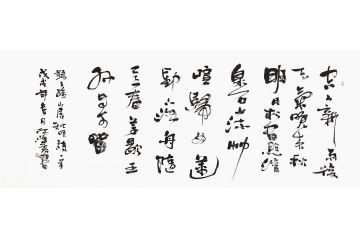 空山新雨後
天氣晚來秋
明月松間照清
泉石上流竹
喧歸浣女蓮
動下漁舟隨
意春芳歇王
孫自可留
山居秋暝
戊戌